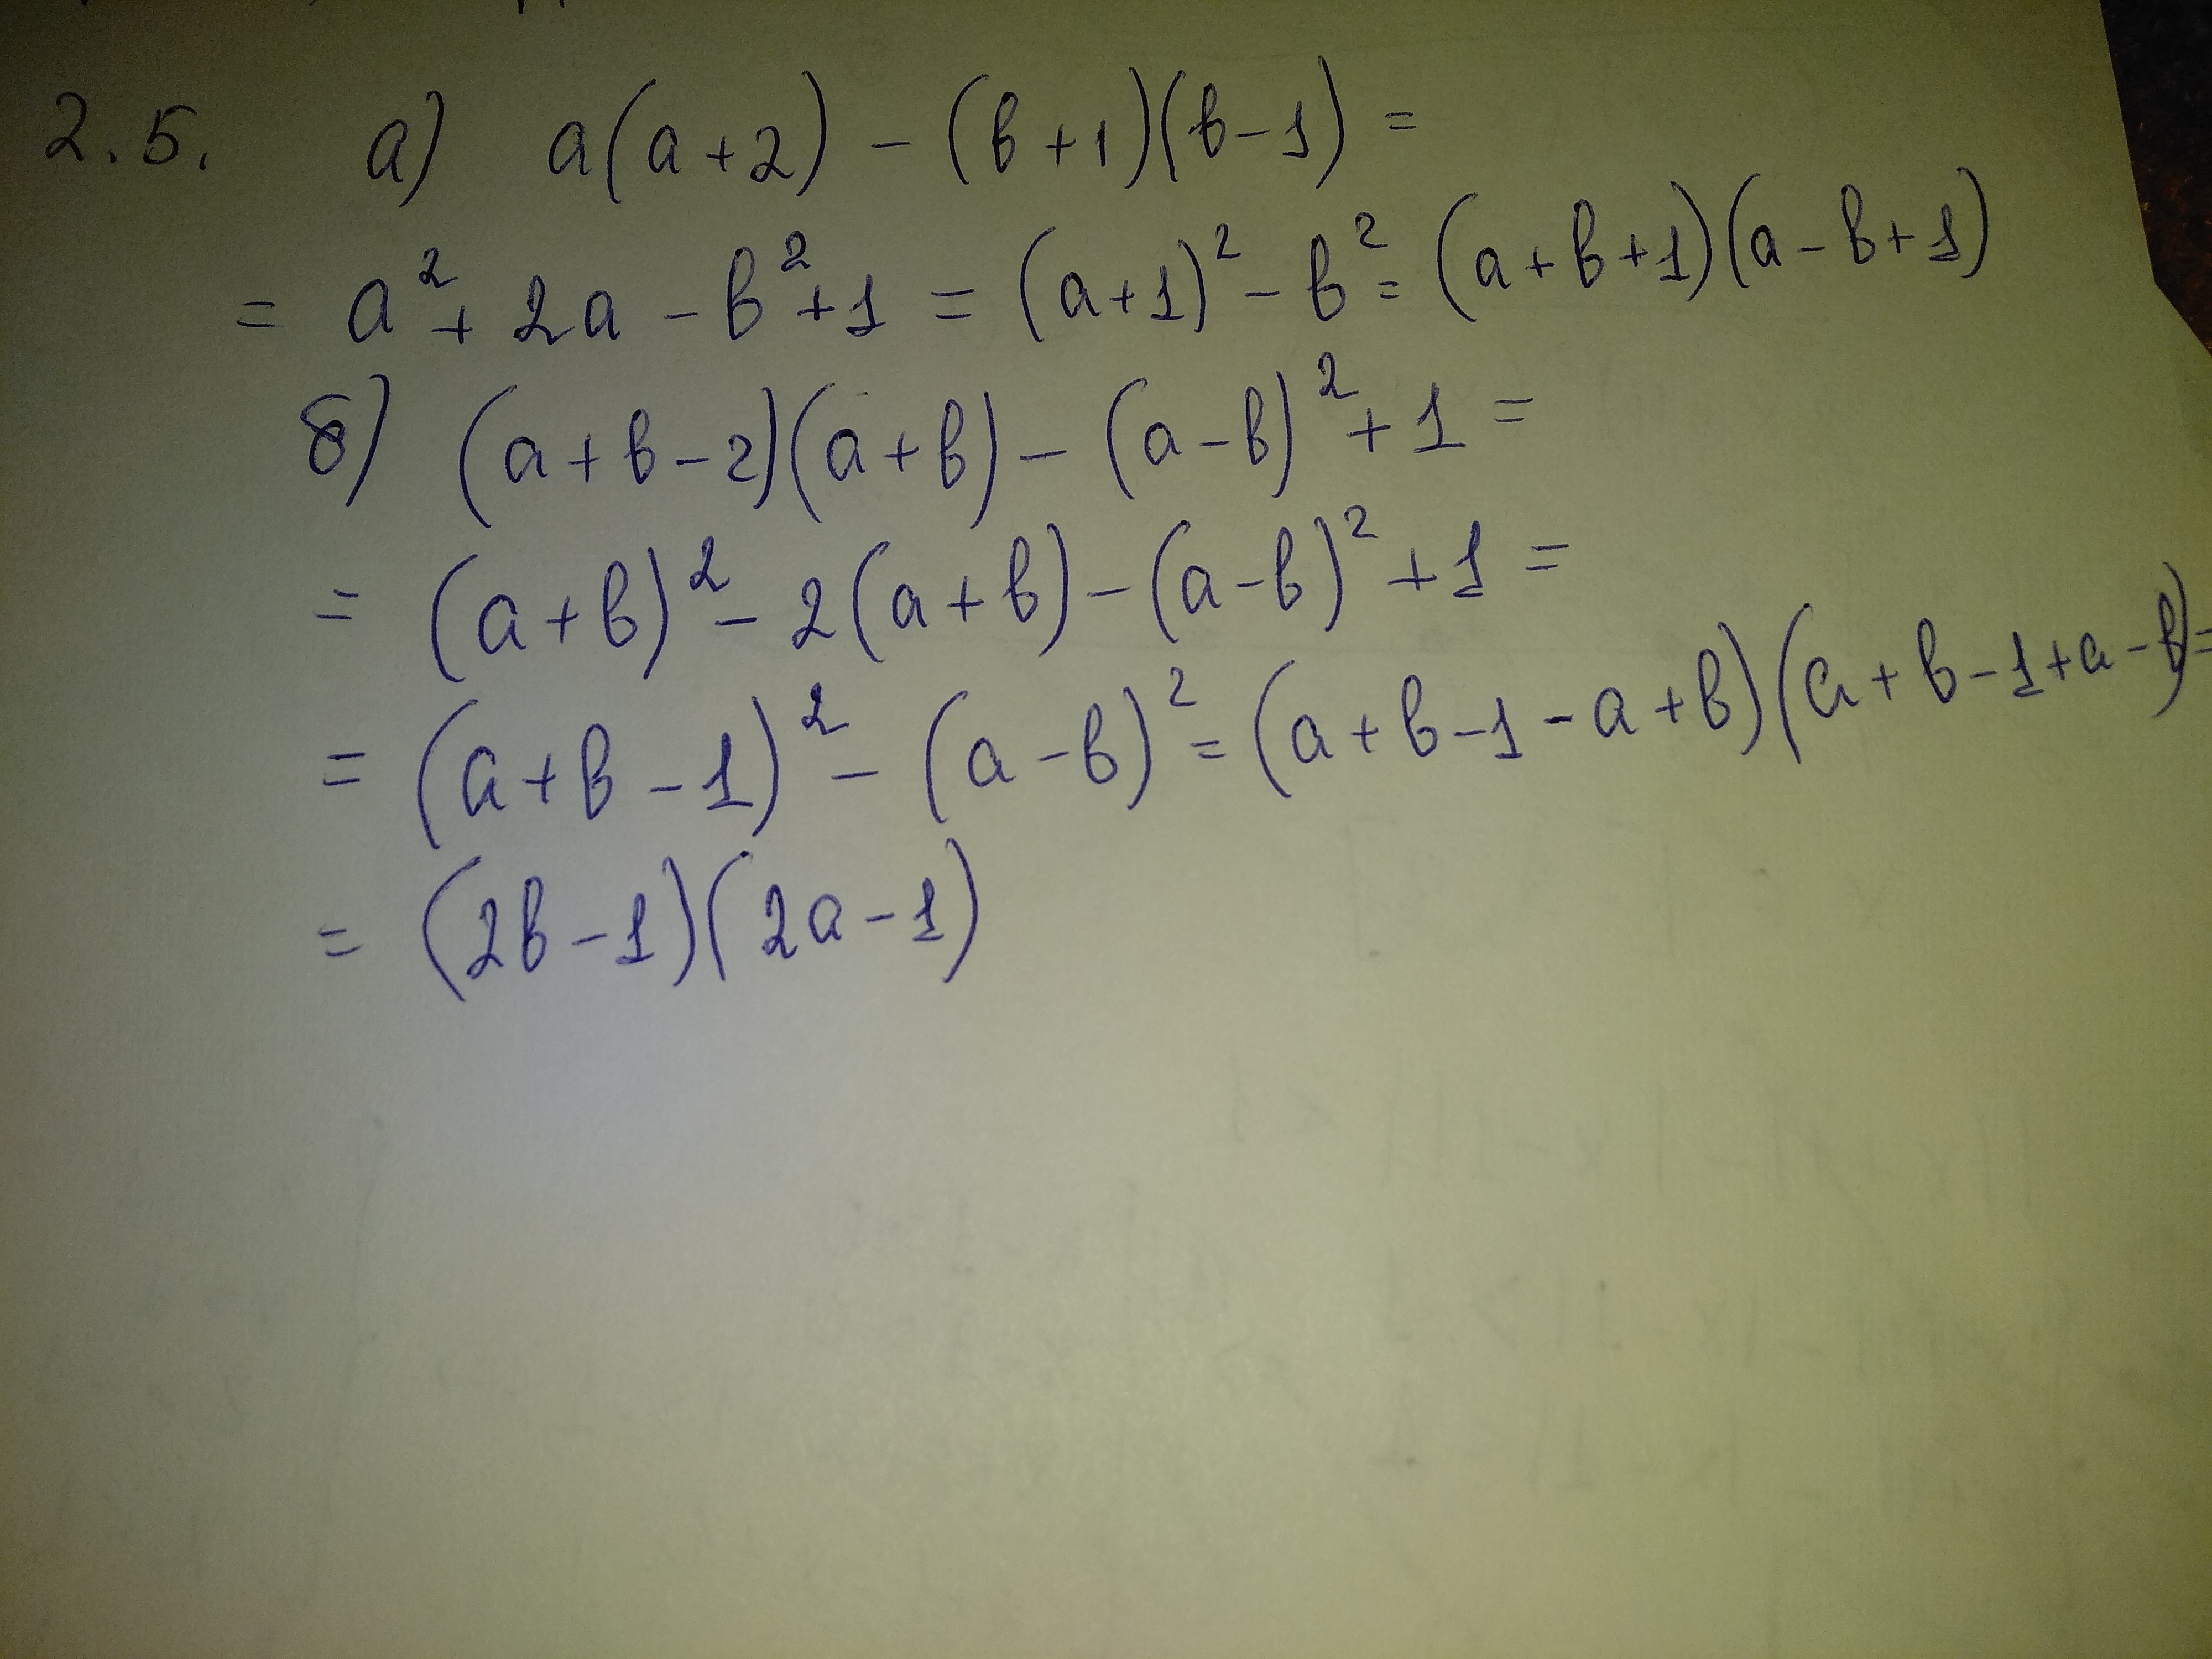 2.5. а) a(a+2) - (b+1)(b-1) =
= a² + 2a - b² + 1 = (a+1)² - b² = (a+b+1)(a-b+1)
б) (a+b-2)(a+b) - (a-b)² + 1 =
= (a+b)² - 2(a+b) - (a-b)² + 1 =
= (a+b-1)² - (a-b)² = (a+b-1-a+b)(a+b-1+a-b) =
= (2b-1)(2a-1)